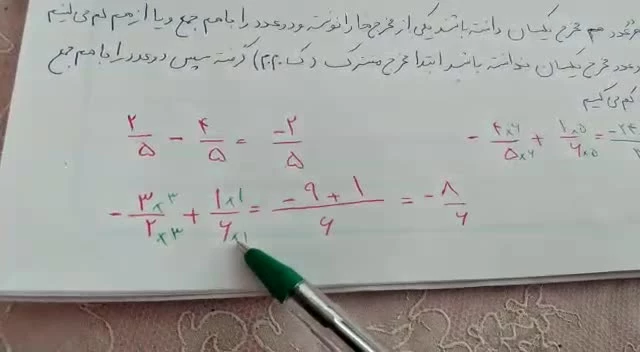 هر عدد هم مخرج یکسان داشته باشد یکی از مخرج ها را نوشته و دو عدد را با هم جمع و یا از هم کم می کنیم
دو عدد مخرج یکسان نداشته باشد ابتدا مخرج مشترک (ک.م.م) گرفته سپس دو عدد را با هم جمع
کم می کنیم
۲/۵ − ۴/۵ = −۲/۵
− ۴×۶/۵×۶ + ۱×۵/۶×۵ = −۲۴
− ۳×۳/۲×۳ + ۱×۱/۶×۱ = −۹+۱/۶ = −۸/۶